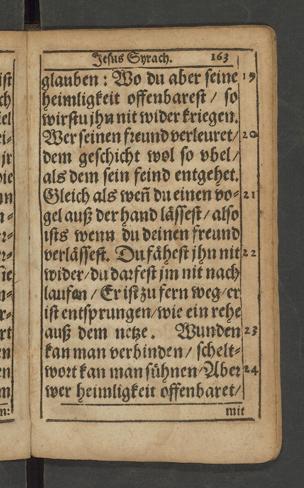 Jesus Syrach. 163
glauben : Wo du aber seine 19
heimligkeit offenbarest / so
wirstu jhn nit wider kriegen.
Wer seinen freund verleuret / 20
dem geschicht wol so vbel /
als dem sein feind entgehet.
Gleich als weñ du einen vo- 21
gel auß der hand lässest / also
ists wenn du deinen freund
verlässest. Du fähest jhn nit 22
wider / du darfest jm nit nach
laufen / Er ist zu fern weg / er
ist entsprungen / wie ein rehe
auß dem netze. Wunden 23
kan man verbinden / schelt-
wort kan man sühnen / Aber 24
wer heimligkeit offenbaret /
mit